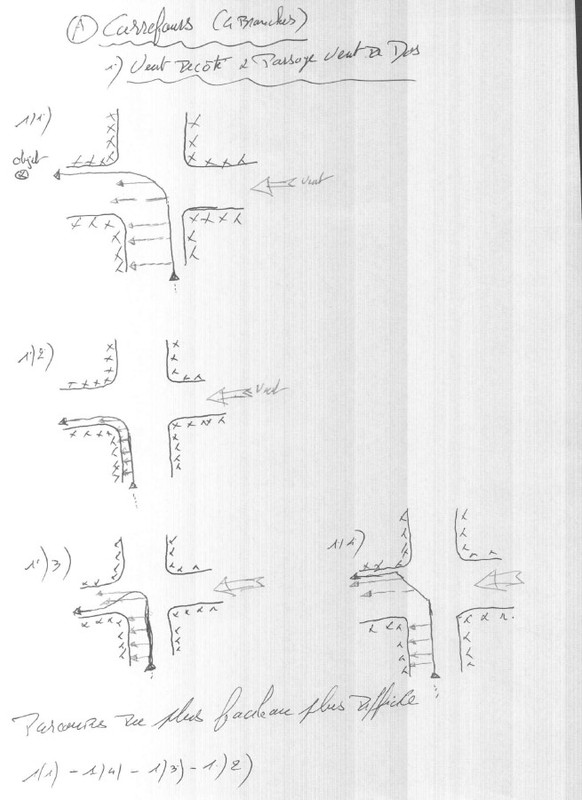 A Carrefours (4 Branches)
1) Vent de côté & Passage Vent de Dos
1)1)
objet
Vent
1)2)
Vent
1)3)
1)4)
Parcours du plus facile au plus difficile
1)1) - 1)4) - 1)3) - 1)2)